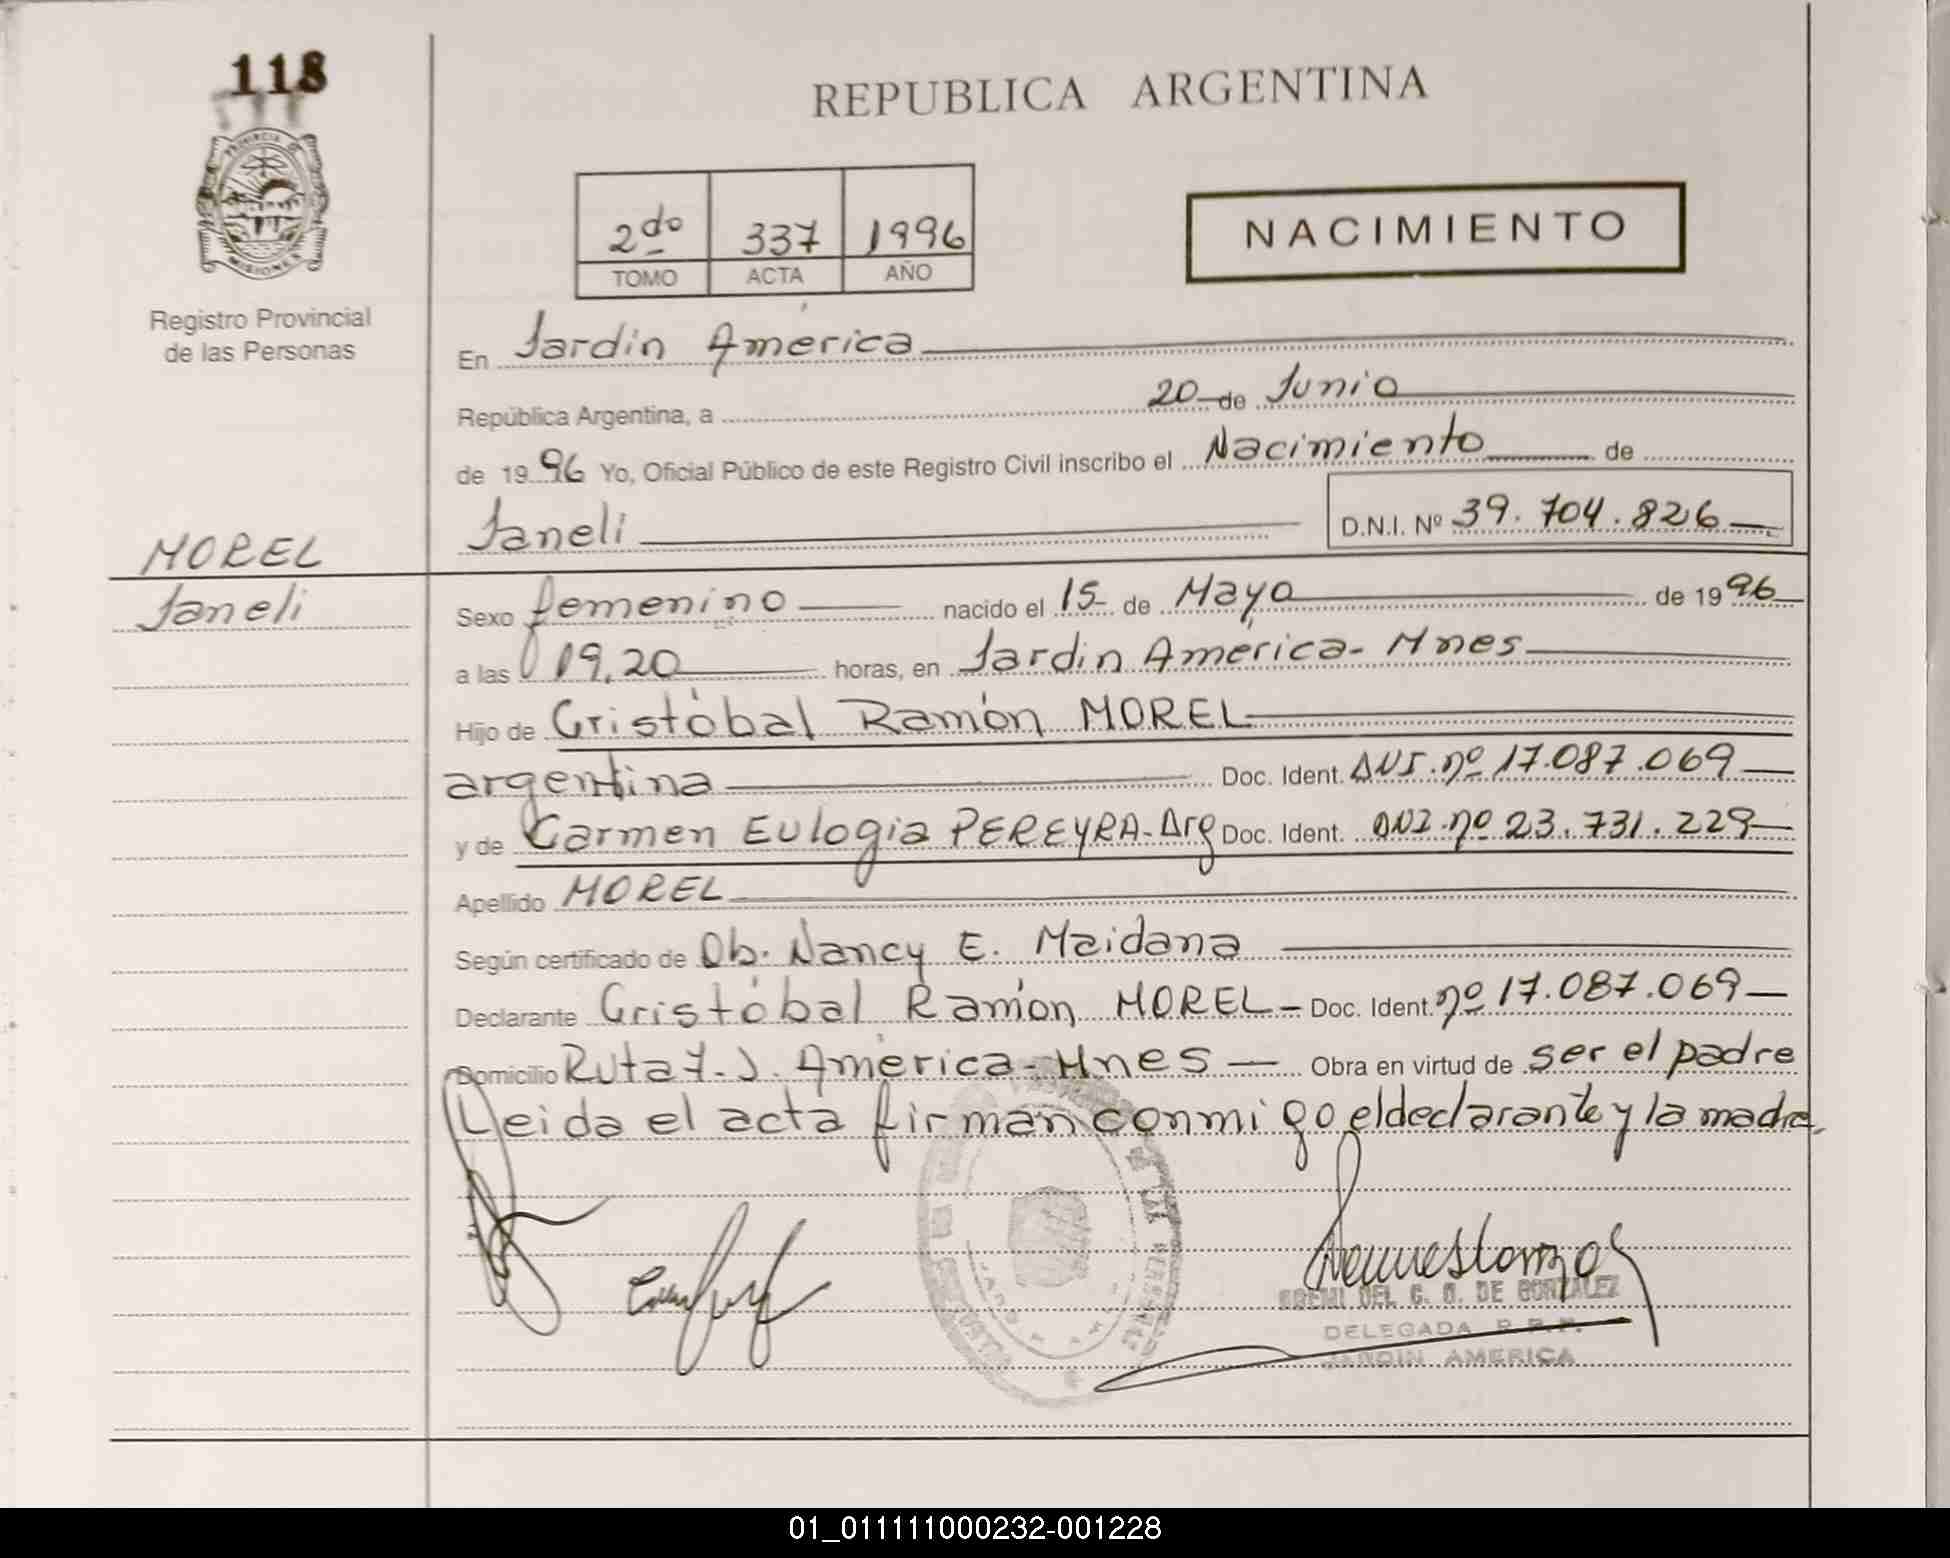 118
REPUBLICA ARGENTINA
PROVINCIA DE
MISIONES
2do 337 1996
TOMO ACTA AÑO
NACIMIENTO
Registro Provincial
de las Personas
En Jardín América
República Argentina, a 20 de Junio
de 1996 Yo, Oficial Público de este Registro Civil inscribo el Nacimiento de
Janeli D.N.I. Nº 39.704.826
MOREL
Janeli
Sexo femenino nacido el 15 de Mayo de 1996
a las 19,20 horas, en Jardín América - Mnes
Hijo de Cristóbal Ramón MOREL
argentina Doc. Ident. DNI. nº 17.087.069
y de Carmen Eulogia PEREYRA - Arg Doc. Ident. DNI. nº 23.731.229
Apellido MOREL
Según certificado de Ob. Nancy E. Maidana
Declarante Cristóbal Ramón MOREL - Doc. Ident. nº 17.087.069
Domicilio Ruta 7. J. América - Mnes - Obra en virtud de ser el padre
Leida el acta firman conmigo el declarante y la madre.
DEL C. G. DE GONZALEZ
DELEGADA R.P.P.
JARDIN AMERICA
01_011111000232-001228